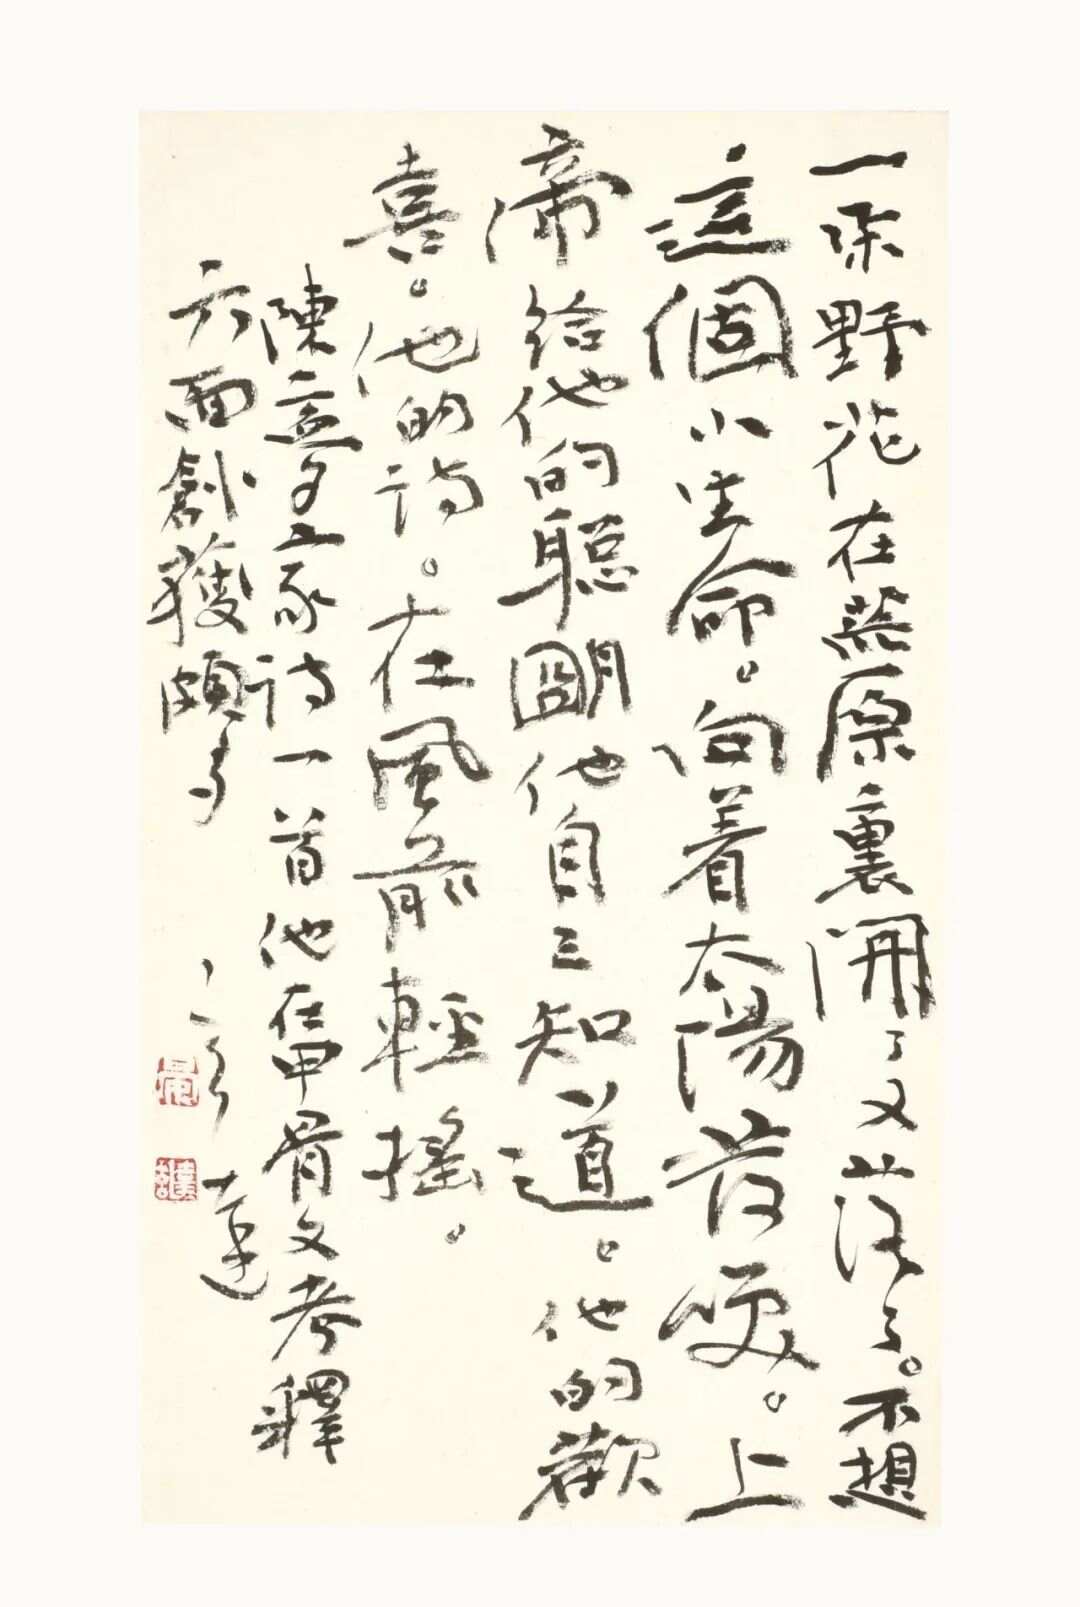 一朵野花在荒原裏開了又落了。不想
這個小生命。向着太陽發咲。上
帝給他的聰明他自己知道。他的歡
喜。他的詩。在風前輕搖。
陳夢家詩一首他在甲骨文考釋
方面創獲頗多